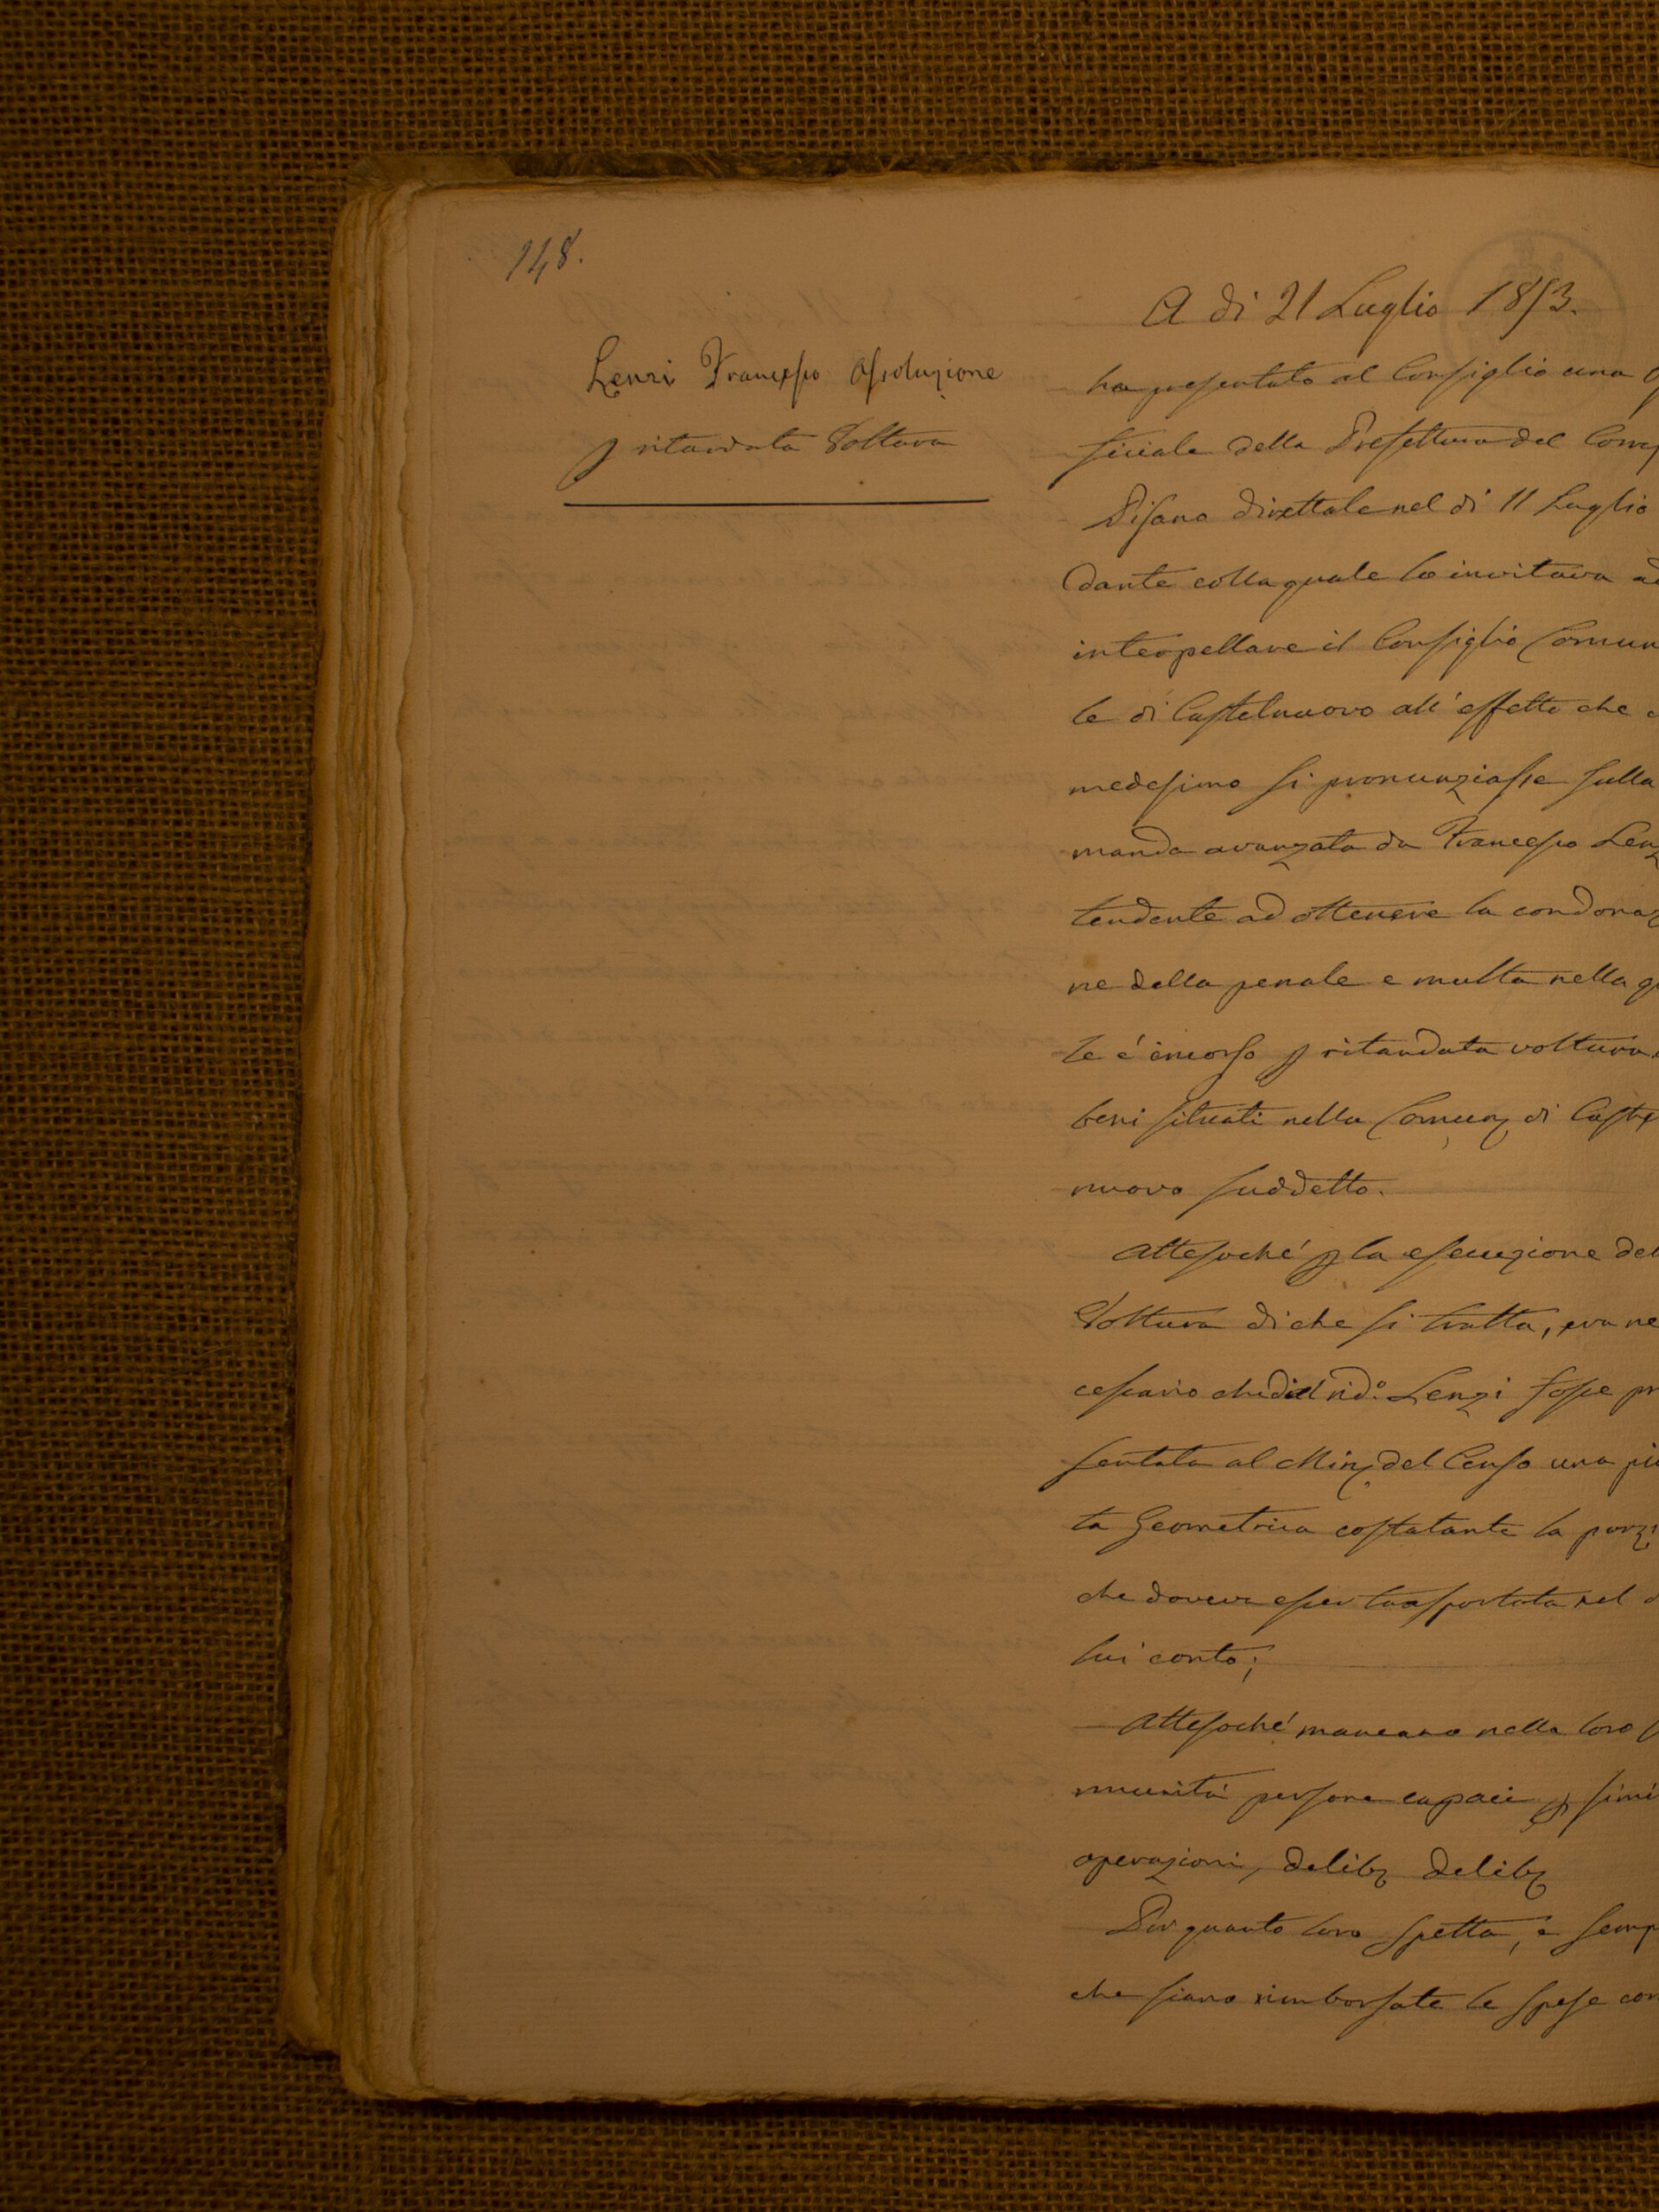 148.
A di 21 Luglio 1853.
Lenzi Francesco Assoluzione
p ritardata Voltura
ha presentato al Consiglio una
ficiale della Prefettura del Comp
Pisano direttale nel di 11 Luglio
dante colla quale lo invitava ad
interpellare il Consiglio Comun
le di Castelnuovo all'effetto che
medesimo si pronunziasse sulla
manda avanzata da Francesco Lenz
tendente ad ottenere la condonaz
ne della penale e multa nella qu
le é incorso p ritardata voltura
beni situati nella Comun di Castel
nuovo suddetto.
Attesoché p la esecuzione del
Voltura di che si tratta, era ne
cessario che dal rid.º Lenzi fosse pr
sentata al Min del Censo una pia
ta Geometrica costatante la porzi
che doveva esser trasportata nel
lui conto;
Attesoché mancano nella loro
munitá persone capaci p simi
operazioni, delib delib
Per quanto loro spetta, e semp
che siano rimborsate le spese con